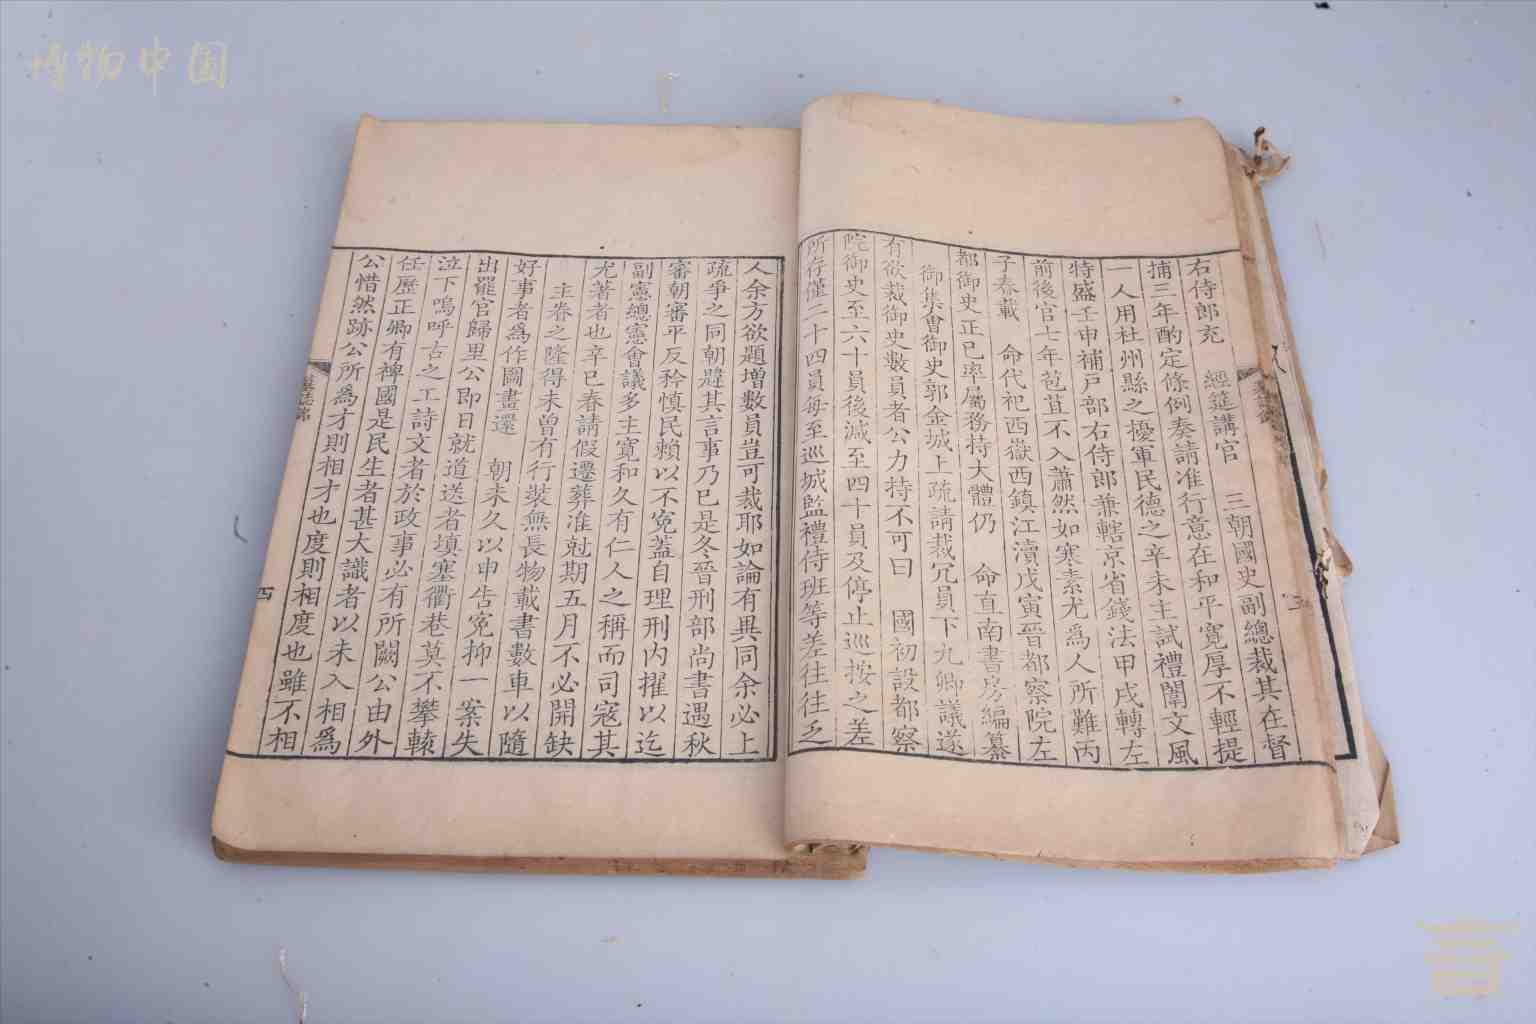 博物中国
右侍郎充　經筵講官　三朝國史副總裁其在督
捕三年酌定條例奏請准行意在和平寬厚不輕提
一人用杜州縣之擾軍民德之辛未主試禮闈文風
特盛壬申補戸部右侍郎兼轄京省錢法甲戌轉左
前後官七年苞苴不入蕭然如寒素尤爲人所難丙
子春載　命代祀西嶽西鎮江瀆戊寅晉都察院左
都御史正已率屬務持大體仍　命直南書房編纂
御集會御史郭金城上疏請裁冗員下九卿議遂
有欲裁御史數員者公力持不可曰　國初設都察
院御史至六十員後減至四十員及停止巡按之差
所存僅二十四員每至巡城監禮侍班等差往往乏
人余方欲題增數員豈可裁耶如論有異同余必上
疏爭之同朝韙其言事乃巳是冬晉刑部尚書遇秋
審朝審平反矜慎民賴以不寃蓋自理刑内擢以迄
副憲總憲會議多主寬和久有仁人之稱而司寇其
尤著者也辛巳春請假遷葬准尅期五月不必開缺
主眷之隆得未曾有行裝無長物載書數車以隨
好事者爲作圖畫還　朝未久以申告寃抑一案失
出罷官歸里公即日就道送者填塞衢巷莫不攀轅
泣下嗚呼古之工詩文者於政事必有所闕公由外
任歷正卿有裨國是民生者甚大識者以未入相爲
公惜然跡公所爲才則相才也度則相度也雖不相
四